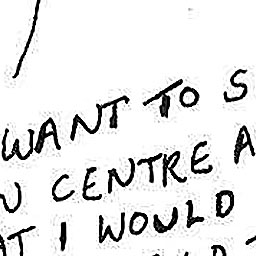 WANT TO S
N CENTRE A
AT I WOULD